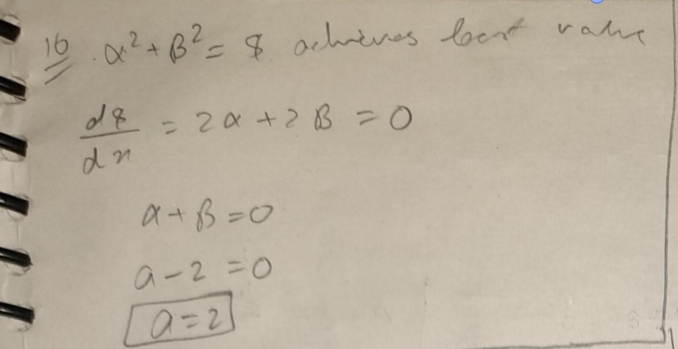 16 . α² + β² = 8 achieves least value
d8/dx = 2α + 2β = 0
α + β = 0
a - 2 = 0
a = 2